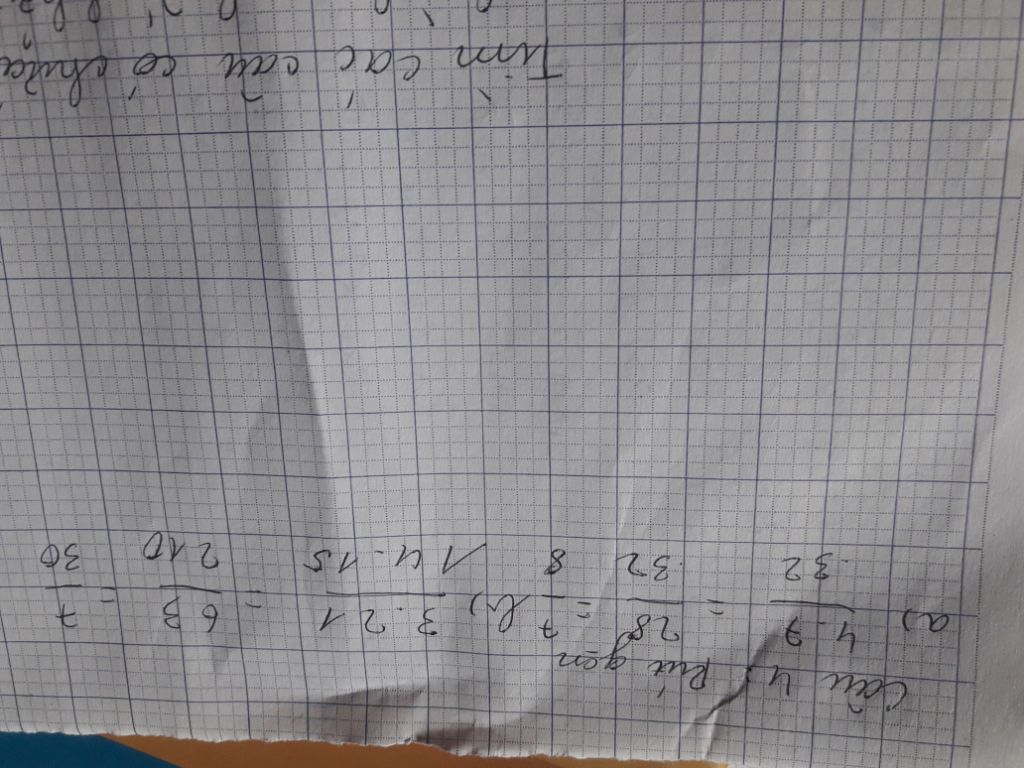 Câu 4) Rút gọn
a) 4.7/32 = 28/32 = 7/8 b) 3.21/14.15 = 63/210 = 7/30
Tìm các câu có chứa